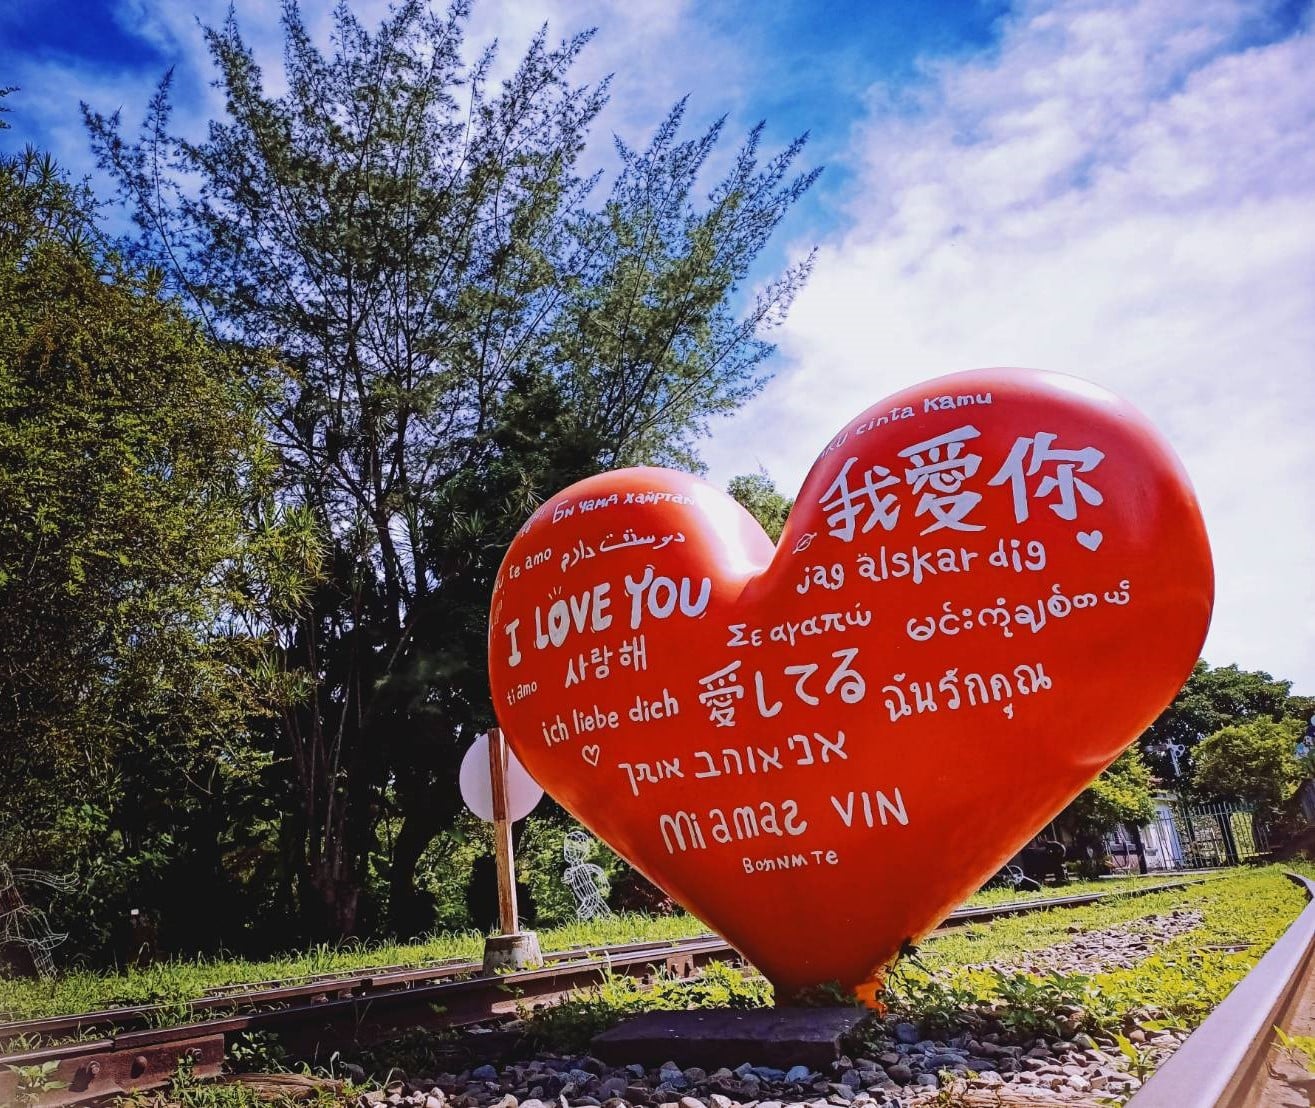 cinta kamu
我愛你
Би чамд хайртай
te amo
دوستت دارم
I LOVE YOU
jag älskar dig
Σε αγαπώ
မင်းကိုချစ်တယ်
사랑해
ti amo
愛してる
ฉันรักคุณ
ich liebe dich
אני אוהב אותך
Mi amas VIN